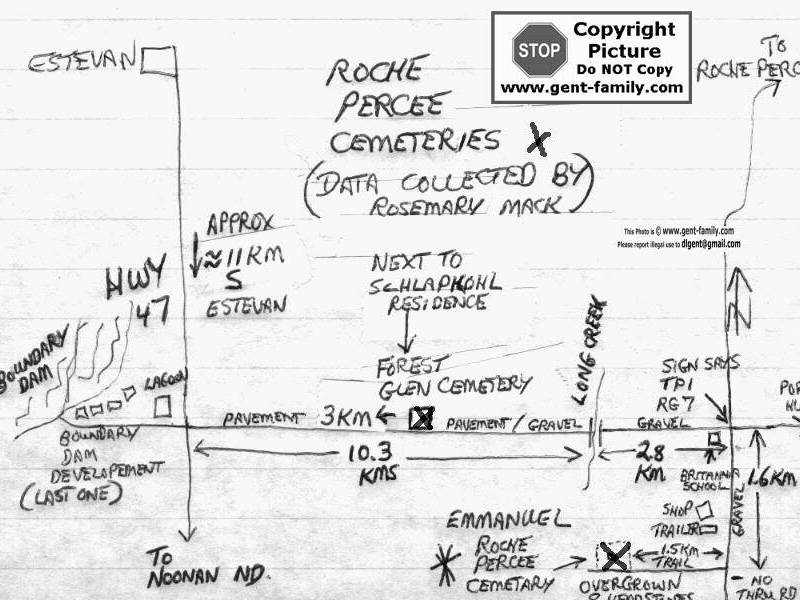 ESTEVAN
ROCHE
PERCEE
CEMETERIES X
(DATA COLLECTED BY
ROSEMARY MACK)
STOP
Copyright
Picture
Do NOT Copy
www.gent-family.com
TO
ROCHE PERC
This Photo is © www.gent-family.com
Please report illegal use to dlgent@gmail.com
APPROX
≈11KM
S
ESTEVAN
HWY
47
NEXT TO
SCHLAPKOHL
RESIDENCE
FOREST
GLEN CEMETERY
LONG CREEK
SIGN SAYS
TP1
RG7
BOUNDARY
DAM
LAGOON
PAVEMENT
3KM
X
PAVEMENT/GRAVEL
GRAVEL
BOUNDARY
DAM
DEVELOPEMENT
(LAST ONE)
10.3
KMS
2.8
KM
BRITANNIA
SCHOOL
1.6KM
GRAVEL
SHOP
TRAILER
EMMANUEL
ROCHE
PERCEE
CEMETARY
X
1.5KM
TRAIL
OVERGROWN
TO
NOONAN ND.
NO
THRU RD